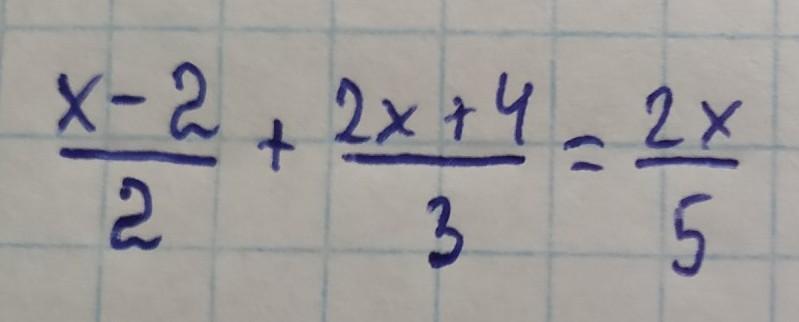 x-2/2 + 2x+4/3 = 2x/5